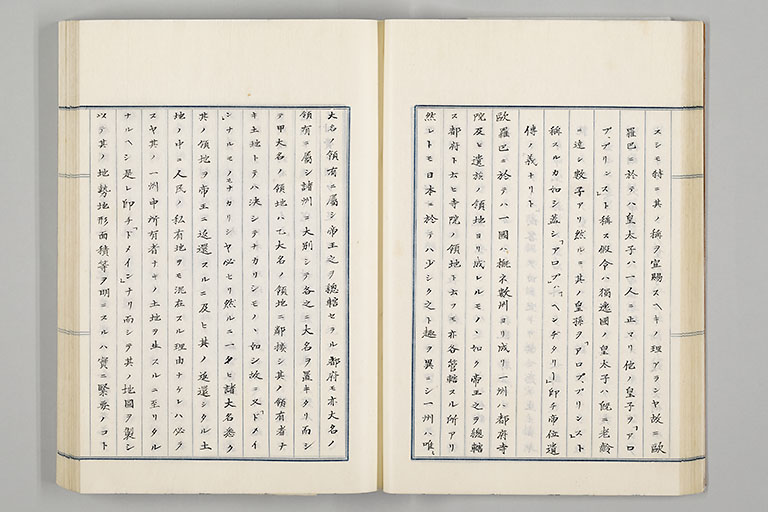 スシモ特ニ其ノ稱ヲ宣賜スヘキノ理アランヤ故ニ歐
羅巴ニ於テハ皇太子ハ一人ニ止マリ他ノ皇子ヲ「アロ
ア、プリンス」ト稱ス假令ハ獨逸國ノ皇太子ハ既ニ老齡
ニ達シ數子アリ然ルニ其ノ皇孫ヲ「アロプ、プリンス」ト
稱スルカ如シ蓋シ「アロプ」ハ「ヘンチタリー」即チ帝位遺
傳ノ義ナリト
歐羅巴ニ於テハ一國ハ概ネ數州ヨリ成リ一州ハ都府寺
院及ヒ遺族ノ領地ヨリ成レルモノヽ如ク帝王之ヲ總轄
ス都府ト云ヒ寺院ノ領地ト云フモ亦各管轄スル所アリ
然レトモ日本ニ於テハ少シク之ト趣ヲ異ニシ一州ハ唯、
大名ノ領有ニ屬シ帝王之ヲ總轄セラル都府モ亦大名ノ
領有ニ屬シ諸州ヲ大別シテ各之ニ大名ヲ置キタリ而シ
テ甲大名ノ領地ハ乙大名ノ領地ニ鄰接シ其ノ領有者ナ
キ土地トテハ決シテナカリシモノヽ如シ故ニ又「ドメイ
ン」ナルモノモナカリシヤ必セリ然ルニ一タヒ諸大名悉ク
其ノ領地ヲ帝王ニ返還スルニ及ヒ其ノ返還シタル土
地ノ中ニ人民ノ私有地ヲモ混在スル理由ナケレハ必ラ
スヤ其ノ一州中所有者ナキノ土地ヲ生スルニ至リタル
ナルヘシ是レ即チ「ドメイン」ナリ而シテ其ノ地圖ヲ製シ
以テ其ノ地勢地形面積等ヲ明ニスルハ實ニ緊要ノコト